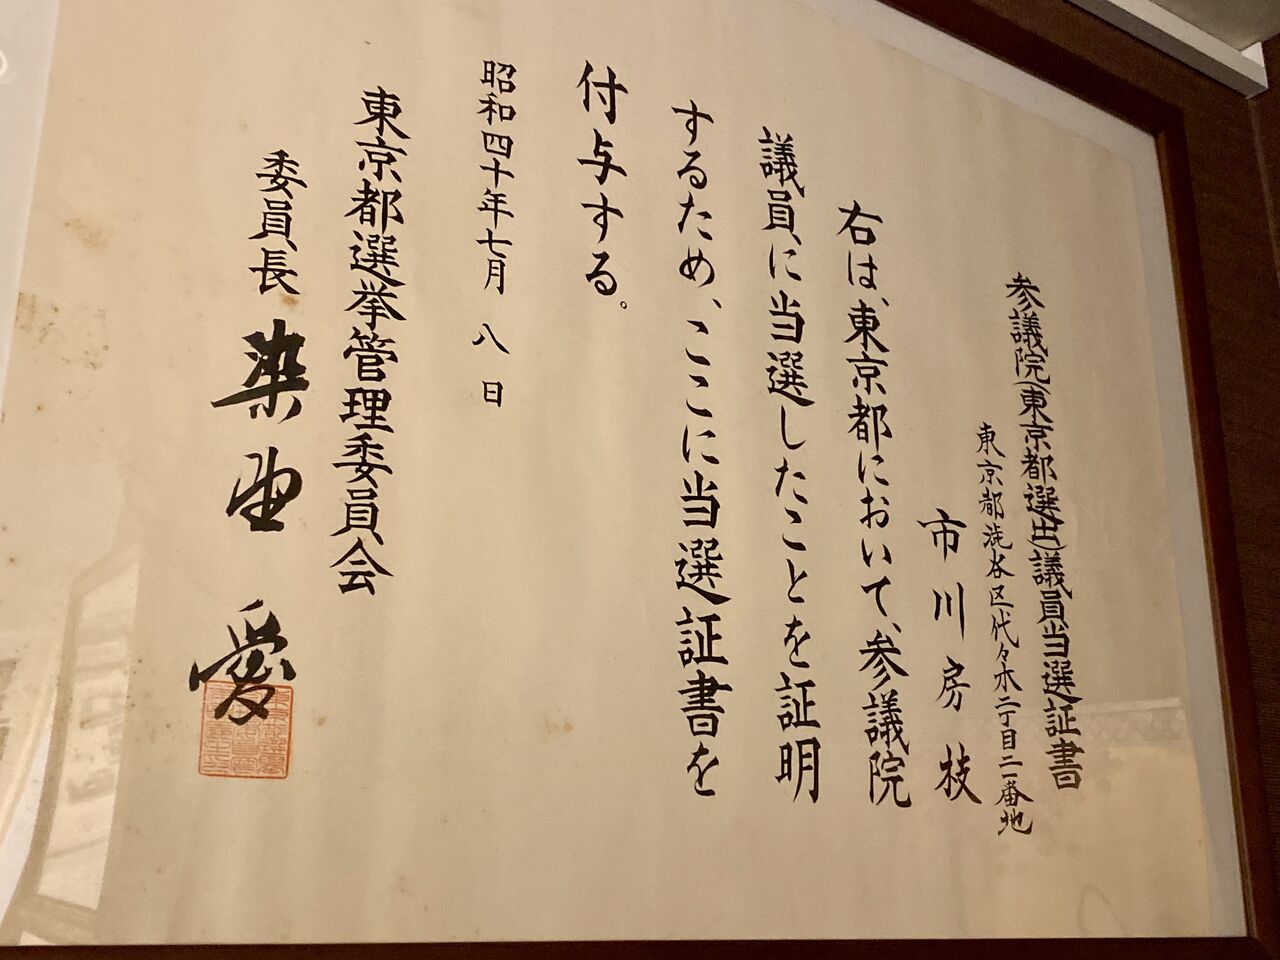 参議院(東京都選出)議員当選証書
東京都渋谷区代々木二丁目二一番地
市川房枝
右は、東京都において、参議院
議員に当選したことを証明
するため、ここに当選証書を
付与する。
昭和四十年七月八日
東京都選挙管理委員会
委員長 染野 愛